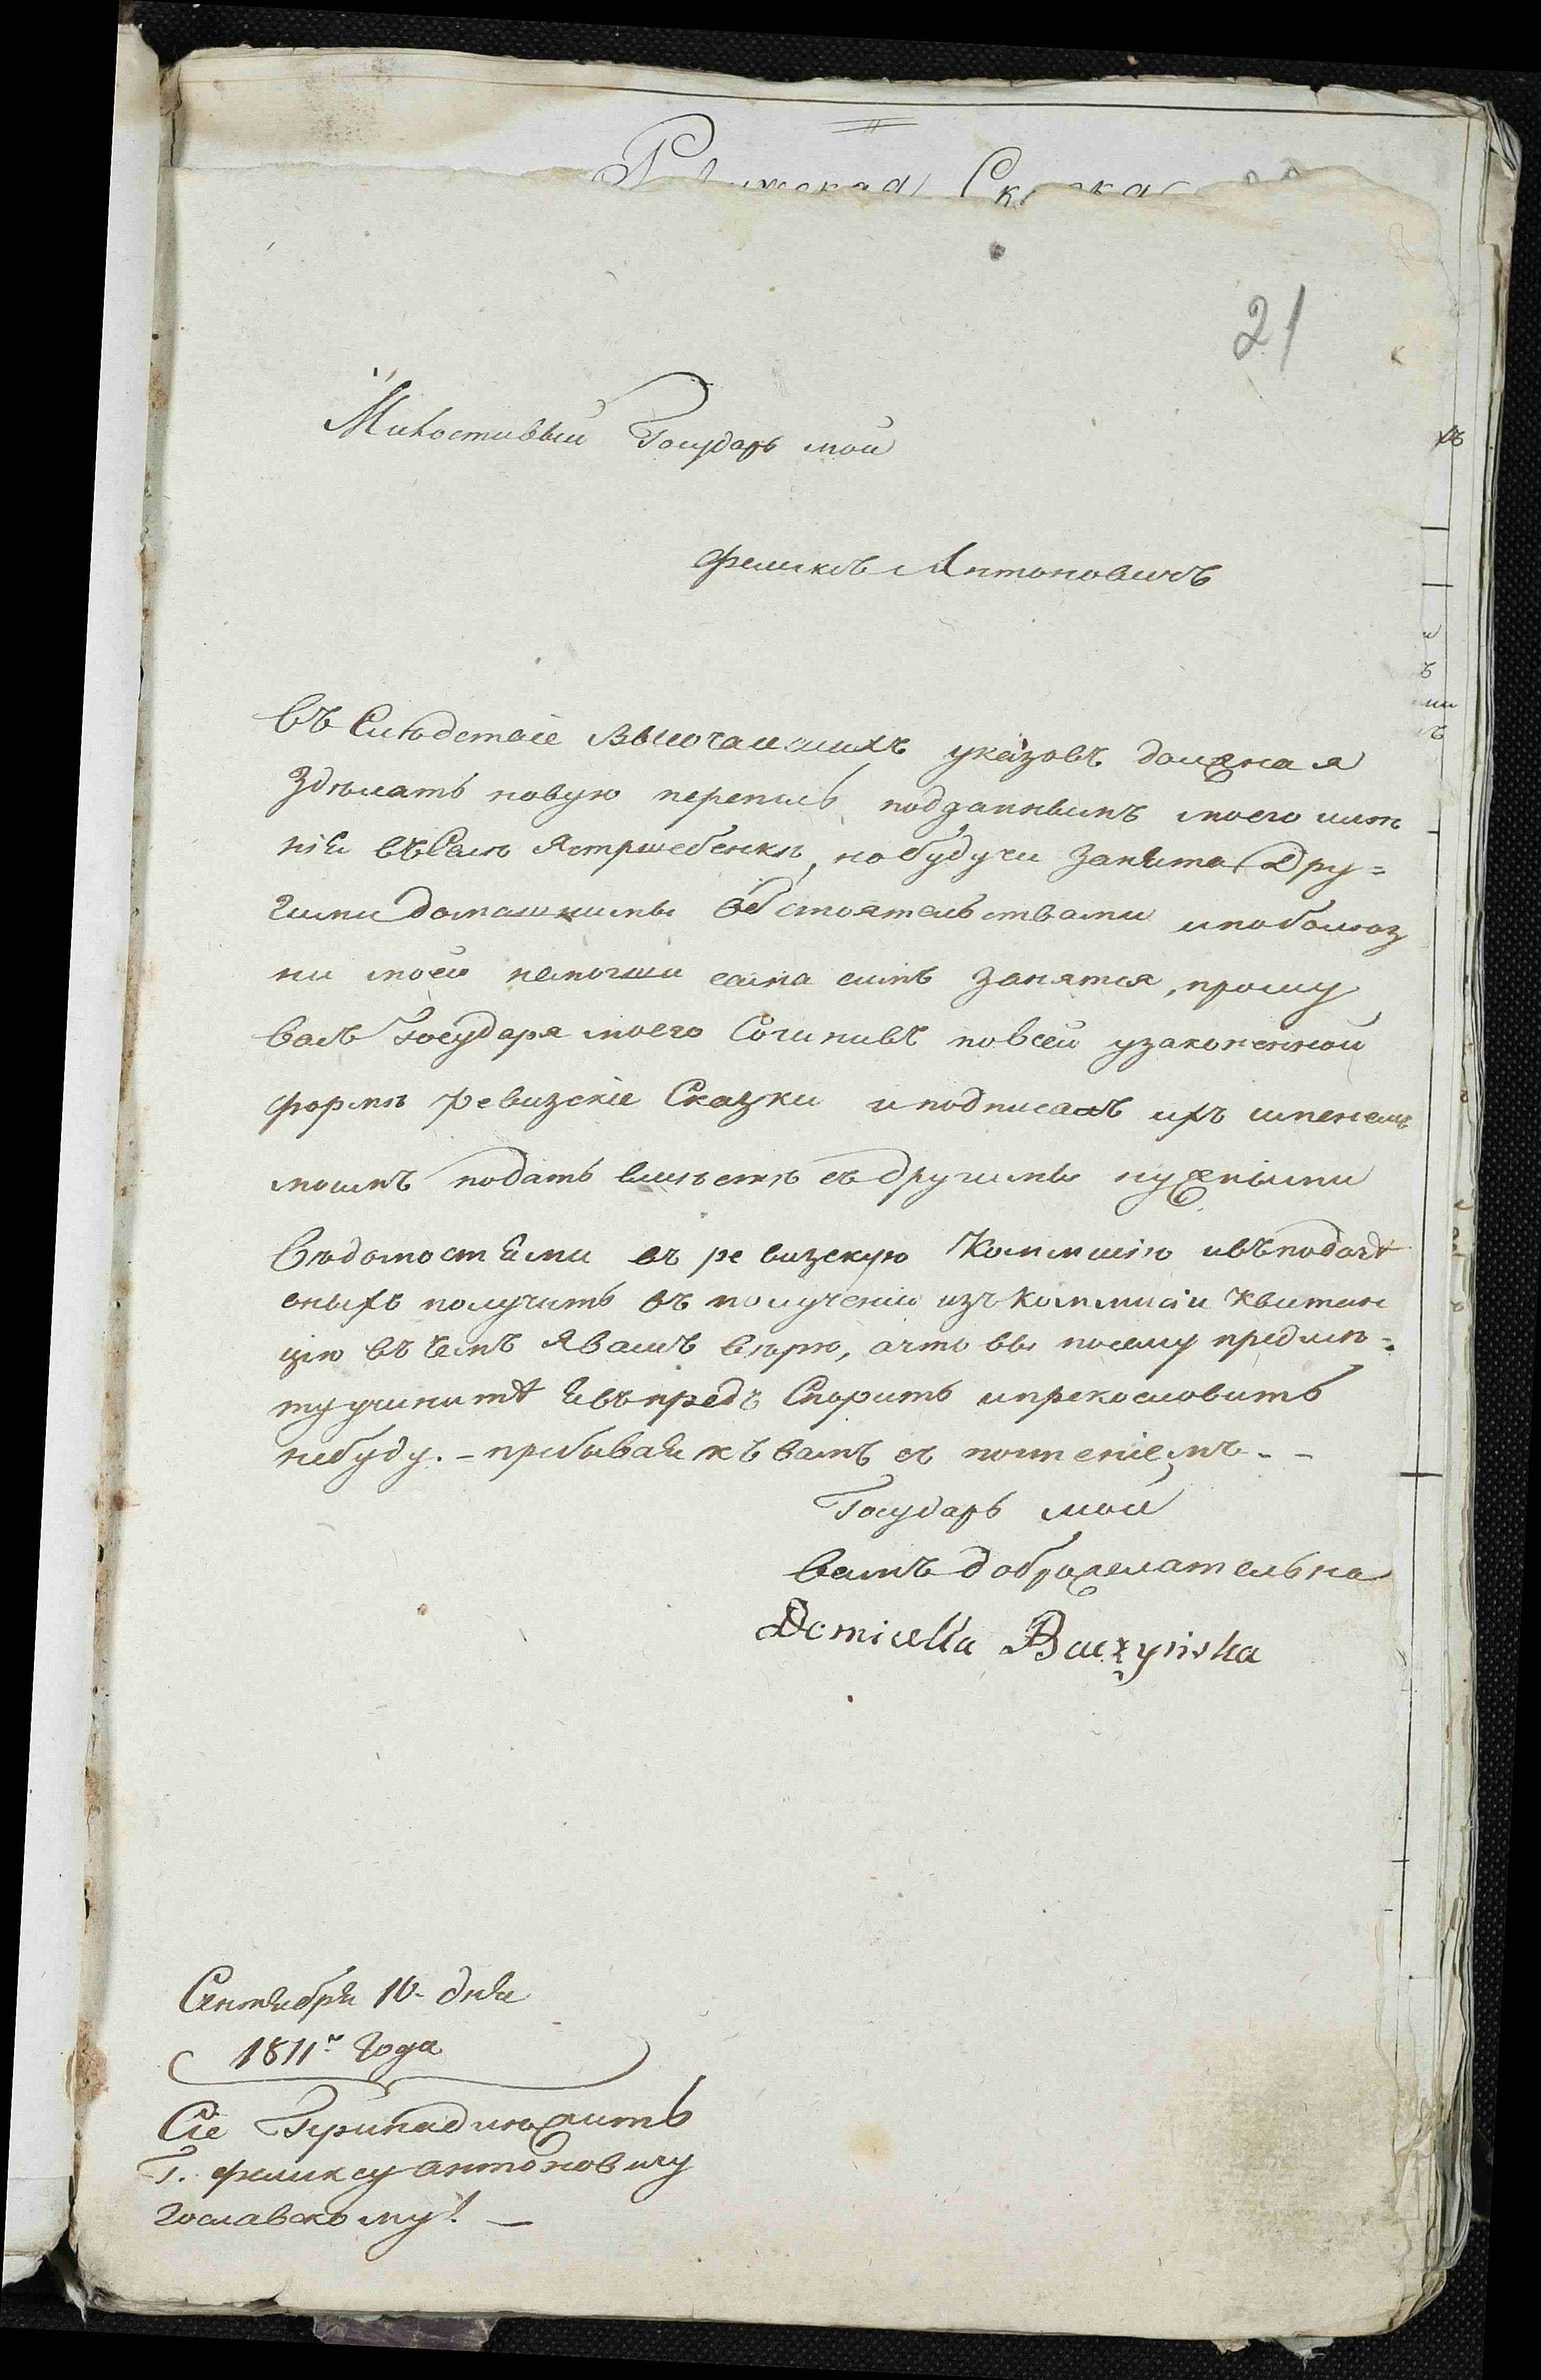 Ревижская Сказка
21
Милостивый Государь мой
Феликсъ Антоновичъ
Въ Слѣдствіе Высочаишихъ указовъ должна я
здѣлать новую перепись подданнымъ моего имѣ
нія въ Селѣ Ястршебенкѣ, но будучи занята Дру=
гими домашними обстоятельствами и по болѣз
ни моей немогши сама симъ занятся, прошу
васъ Государя моего Сочинивъ по всей узаконенной
формѣ ревизскіе Сказки и подписавъ ихъ именемъ
моимъ подать вмѣстѣ съ другими нужными
вѣдомостями въ ревизскую Коммисію и въ подачѣ
оныхъ получить въ полученіи изъ Коммисіи Квитан
цію въ чемъ я вамъ вѣрю, а что вы по сему предмѣ=
ту учините я въ предъ Спорить и прекословить
небуду. - пребывая къ вамъ съ почтеніемъ - -
Государь мой
вамъ доброжелательна
Domicella Baczyńska
Сентября 10- дня
1811го Года
Сіе Принадлѣжитъ
Г. Феликсу Антоновичу
Гославскому! —